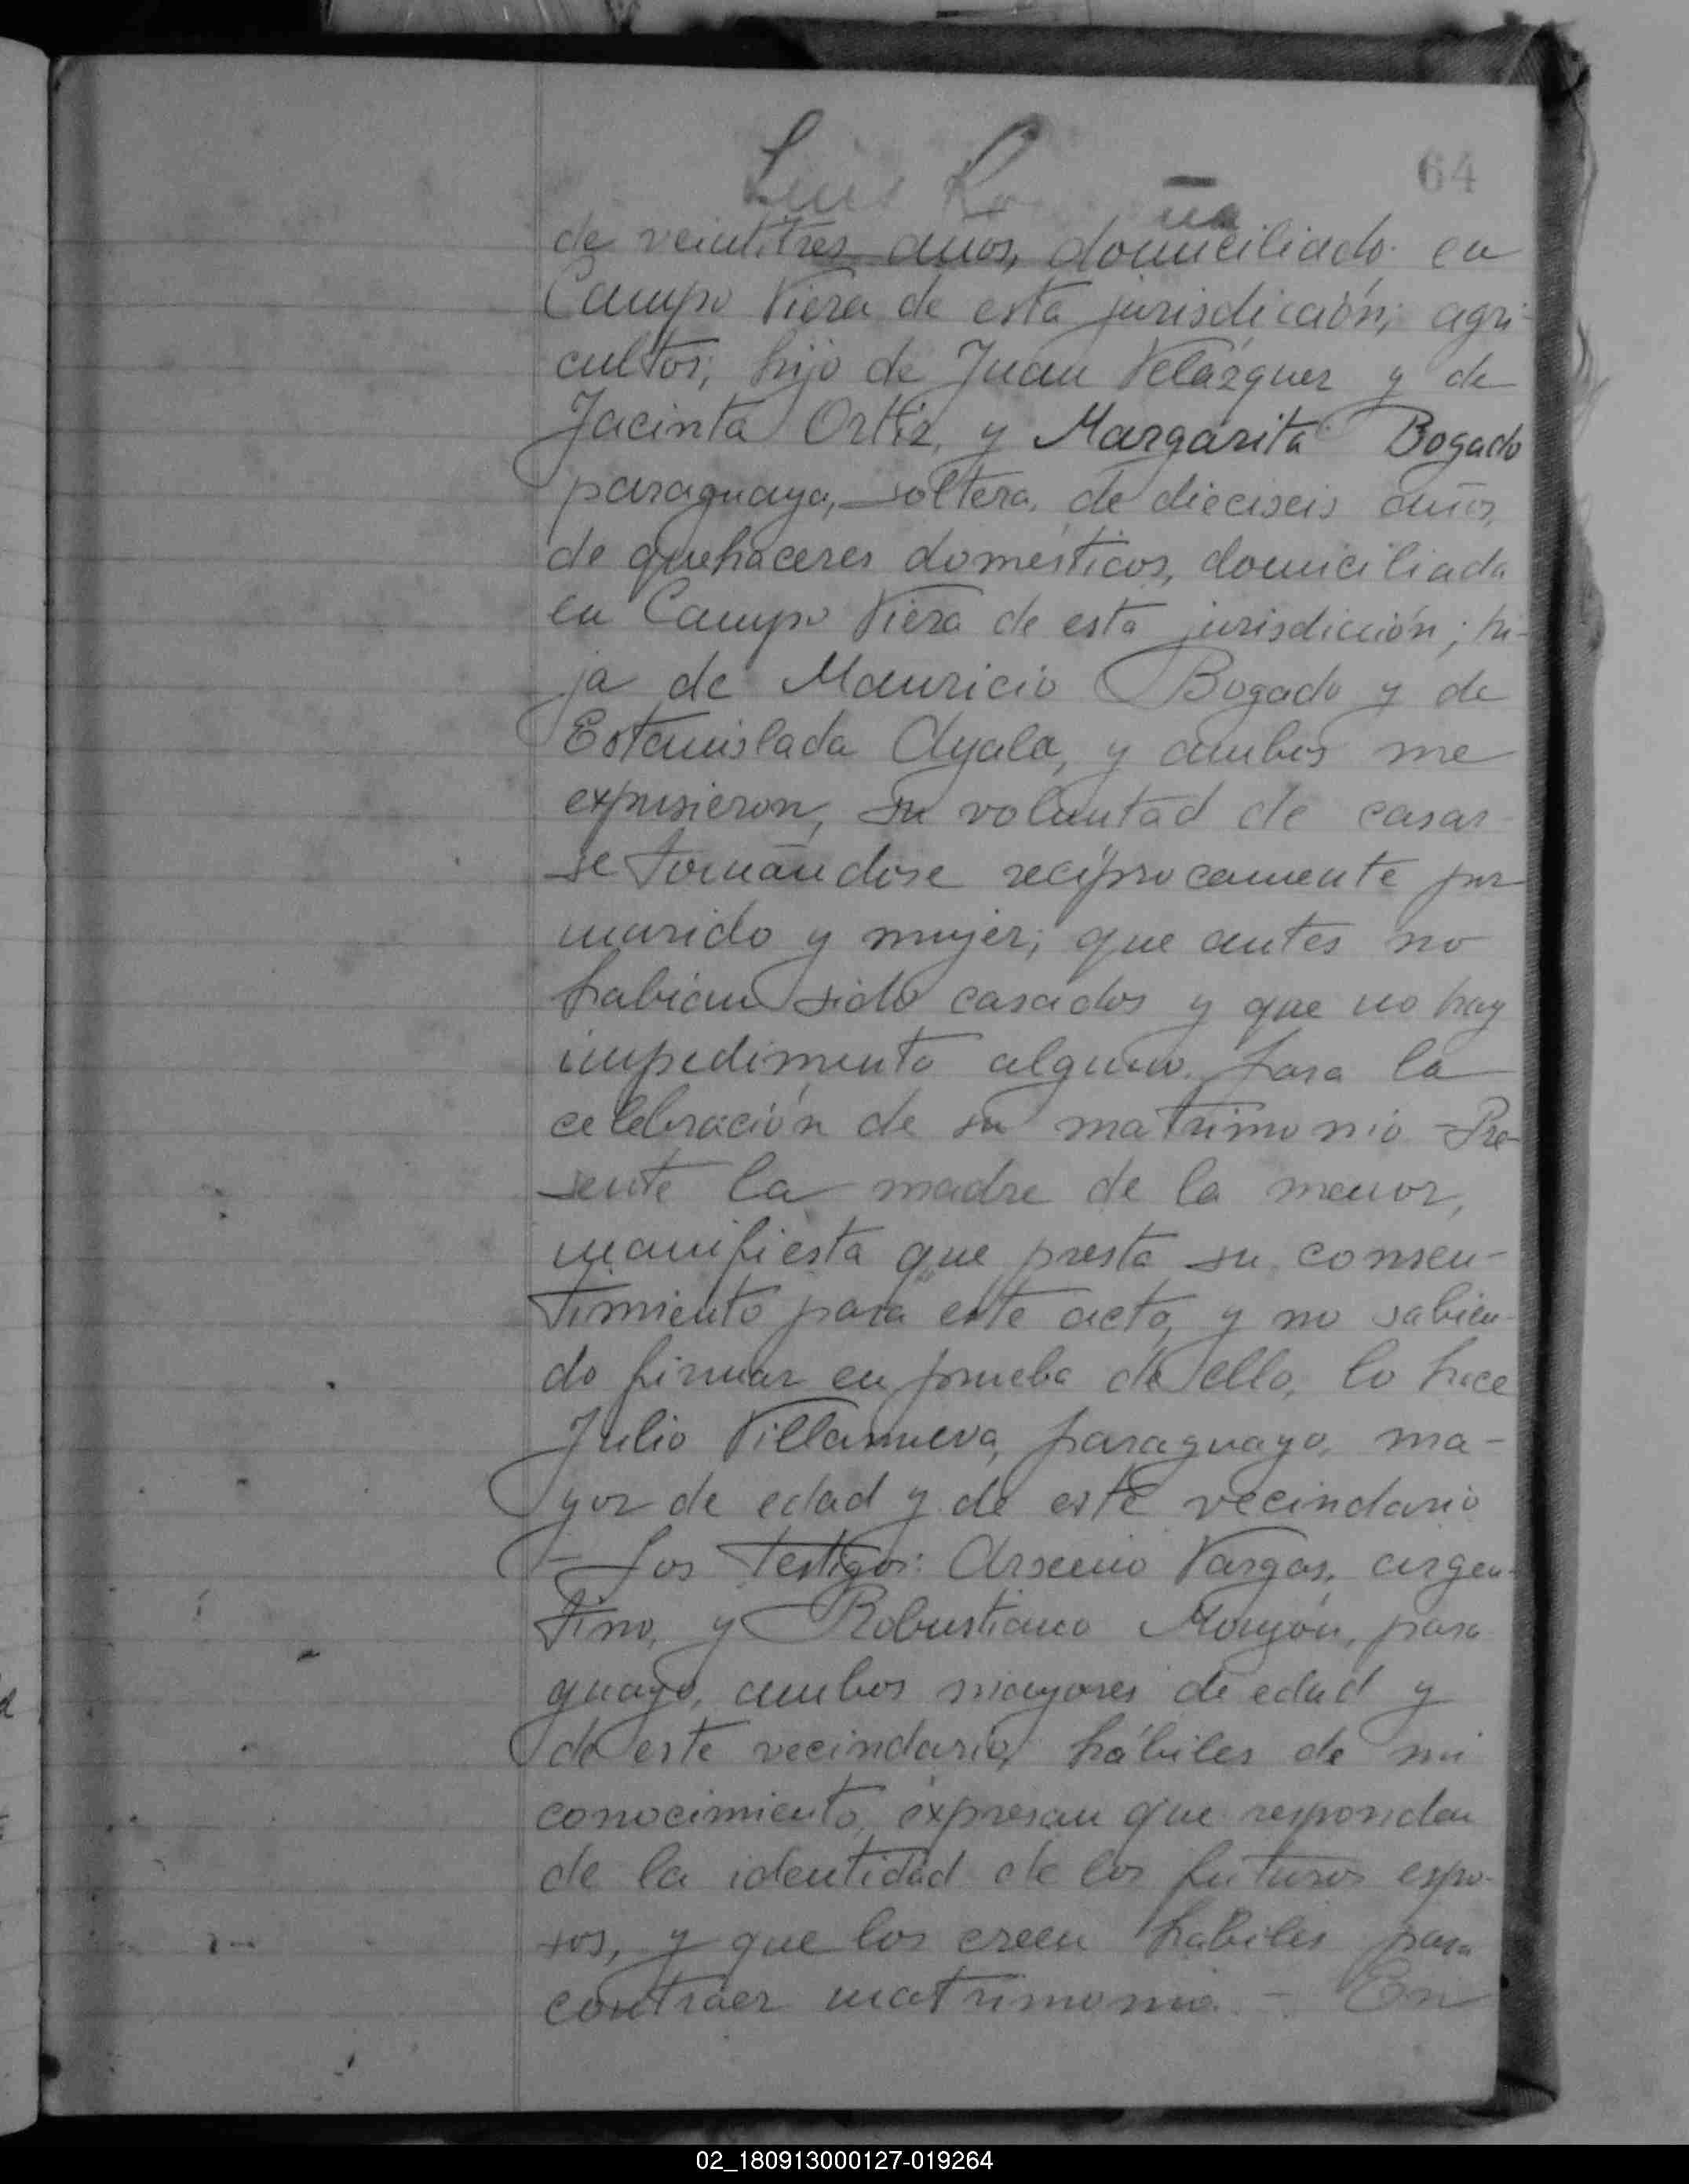 64
Luis
de veintitres años, domiciliado en
Campo Viera de esta jurisdicción; agri-
cultor; hijo de Juan Velázquez y de
Jacinta Ortiz, y Margarita Bogado
paraguaya, soltera, de dieciseis años,
de quehaceres domésticos, domiciliada
en Campo Viera de esta jurisdicción; hi-
ja de Mauricio Bogado y de
Estanislada Ayala, y ambos me
expusieron, su voluntad de casar-
se tomándose recíprocamente por
marido y mujer; que antes no
habían sido casados y que no hay
impedimento alguno para la
celebración de su matrimonio - Pre-
sente la madre de la menor,
manifiesta que presta su consen-
timiento para este acto, y no sabien-
do firmar en prueba de ello, lo hace
Julio Villanueva, paraguayo, ma-
yor de edad y de este vecindario
- Los testigos: Arsenio Vargas, argen-
tino, y Robustiano Monjón, para
guayo, ambos mayores de edad y
de este vecindario, hábiles de mi
conocimiento, expresan que responden
de la identidad de los futuros espo-
sos, y que los creen hábiles para
contraer matrimonio. - En
02_180913000127-019264